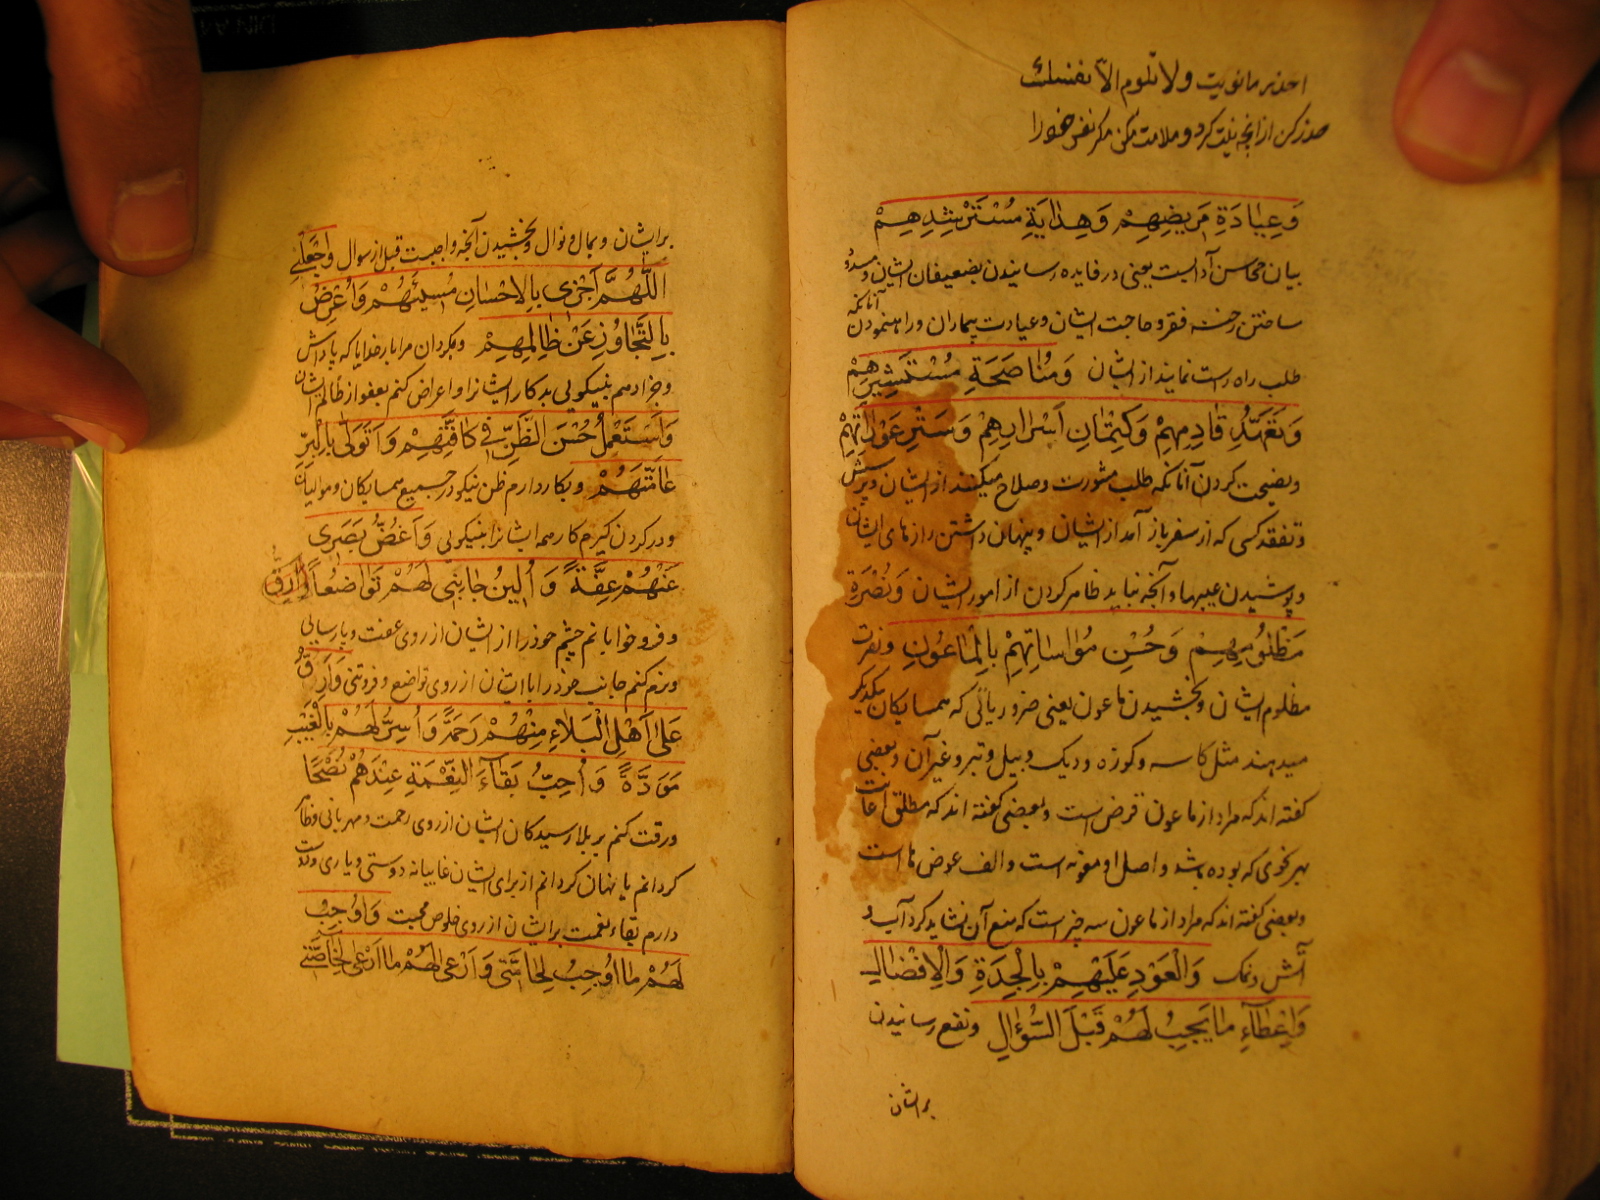 احذر مانويت ولا تلوم الاّ نفسك
حذر کن از آنچه نیت کرد و ملامت مکن مکر نفس خود را
وَعِيٰادَةِ مَريضِهِمْ وَهِدٰايَةِ مُسْتَرْشِدِهِمْ
بیان محاسن آدابست یعنی در فایده رسانیدن بضعیفان ایشان و سد و
ساختن رخنه فقر و حاجت ایشان و عیادت بیماران و راه نمودن آنانکه
طلب راه راست نمایند از ایشان وَمُنٰاصَحَةِ مُسْتَشيرِهِمْ
وَتَعَهُّدِ قٰادِمِهِمْ وَكِتْمٰانِ اَسْرٰارِهِمْ وَسَتْرِ عَوْرٰاتِهِمْ
و نصیحت کردن آنانکه طلب مشورت و صلاح میکنند از ایشان و پرسش
و تفقد کسی که از سفر باز آمد از ایشان و پنهان داشتن رازهای ایشان
و پوشیدن عیبها و آنچه نباید ظاهر کردن از امور ایشان وَنُصْرَةِ
مَظْلُومِهِمْ وَحُسْنِ مُوٰاسٰاتِهِمْ بِالْمٰاعُونِ و نصرت
مظلوم ایشان و بخشیدن ماعون یعنی ضروریاتی که همسایکان بیکدیکر
میدهند مثل کاسه و کوزه و دیک و بیل و تبر و غیر آن و بعضی
کفته اند که مراد از ماعون قرض است و بعضی کفته اند که مطلق اعانت
بهر نحوی که بوده باشد و اصل او معونه است و الف عوض ها است
و بعضی کفته اند که مراد از ماعون سه چیز است که منع آن نشاید کرد آب و
آتش و نمک وَالْعَوْدِ عَلَيْهِمْ بِالْجِدَةِ وَالْاِفْضٰالِ
وَاِعْطٰآءِ مٰا يَجِبُ لَهُمْ قَبْلَ السُّؤٰالِ و نفع رسانیدن
بر ایشان
بر ایشان و بمال و نوال و بخشیدن آنچه واجبست قبل از سوال وَاجْعَلْنِي
اللّٰهُمَّ اَجْزي بِالْاِحْسٰانِ مُسيٓئَهُمْ وَاُعْرِضُ
بِالتَّجٰاوُزِ عَنْ ظٰالِمِهِمْ و بکردان مرا بار خدایا که پاداش
و جزا دهم بنیکویی بدکار ایشانرا و اعراض کنم بعفو از ظالم ایشان
وَاَسْتَعْمِلُ حُسْنَ الظَّنِّ في كٰافَّتِهِمْ وَاَتَوَلّٰى بِالْبِرِّ
عٰامَّتَهُمْ و بکار دارم ظن نیکو در جمیع همسایکان و موالیان
و در کردن کیرم کار همه ایشانرا بنیکویی وَاَغُضُّ بَصَري
عَنْهُمْ عِفَّةً وَاُلينُ جٰانِبي لَهُمْ تَوٰاضُعًا وَاَرِقُّ
و فرو خوابانم چشم خود را از ایشان از روی عفت و پارسایی
و نرم کنم جانب خود را با ایشان از روی تواضع و فروتنی وَاَرِقُّ
عَلٰى اَهْلِ الْبَلٰاءِ مِنْهُمْ رَحْمَةً وَاُسِرُّ لَهُمْ بِالْغَيْبِ
مَوَدَّةً وَاُحِبُّ بَقٰآءَ النِّعْمَةِ عِنْدَهُمْ نُصْحًا
و رقت کنم بر بلا رسیدکان ایشان از روی رحمت و مهربانی و ظاهر
کردانم یا پنهان کردانم از برای ایشان غایبانه دوستی و یاری و دوست
دارم بقاء نعمت بر ایشان از روی خلوص محبت وَاُوجِبُ
لَهُمْ مٰا اُوجِبُ لِحٰامَّتي وَاَرْعٰى لَهُمْ مٰا اَرْعٰى لِخٰاصَّتي